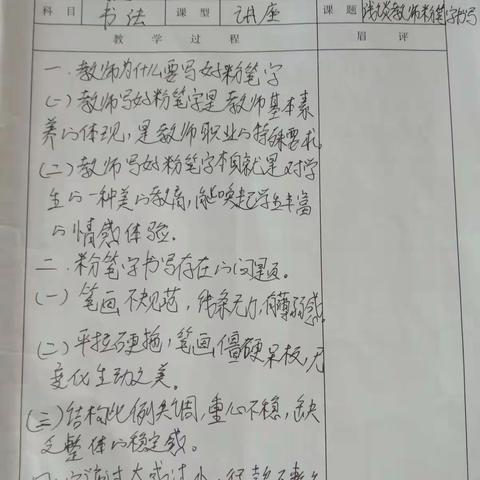 科目 书法 课型 讲座 课题 浅谈教师粉笔字书写
教学过程 眉评
一.教师为什么要写好粉笔字
(一)教师写好粉笔字是教师基本素
养的体现,是教师职业的特殊要求。
(二)教师写好粉笔字本身就是对学
生的一种美的教育,能唤起学生丰富
的情感体验.
二.粉笔字书写存在的问题。
(一)笔画不规范,线条无力,有薄弱感.
(二)平拉硬拖,笔画僵硬呆板,无
变化生动之美。
(三)结构比例失调,重心不稳,缺
乏整体的稳定感。